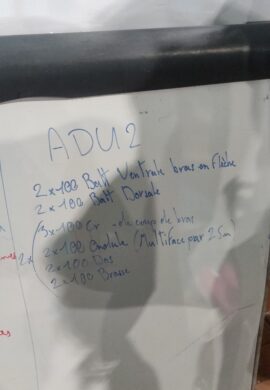 ADU2
2x100 Batt Ventrale bras en flèche
2x100 Batt Dorsale
3x100 Cr - du coup de bras
2x 2x100 Ondule (Multiface par 25m)
2x100 Dos
2x100 Brasse